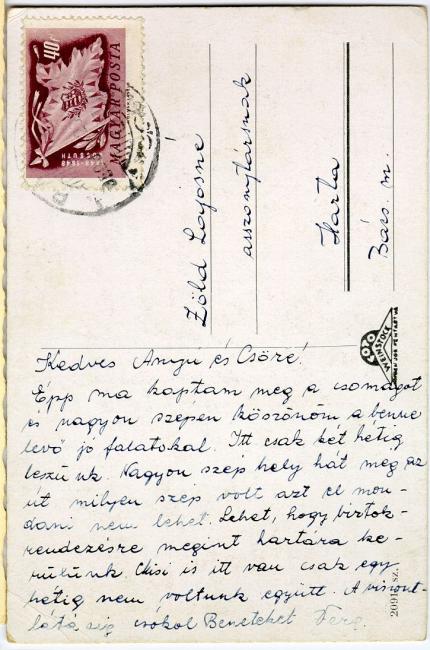 40f
MAGYAR POSTA
1848-1948
KOSSUTH
Zöld Lajosné
asszonytársnak
Harta
Bács. m.
WEINSTOCK
MINDEN JOG FENTARTVA
Kedves Anyu és Csöré!
Épp ma kaptam meg a csomagot
és nagyon szepen köszönöm a benne
levő jó falatokat. Itt csak két hétig
leszünk. Nagyon szep hely hát meg az
út milyen szep volt azt el mon-
dani nem lehet. Lehet, hogy birtok-
rendezésre megint hartára ke-
rülünk. Misi is itt van csak egy
hétig nem voltunk együtt. A viszont-
látásig csókol Beneteket Ferg.
2091. sz.